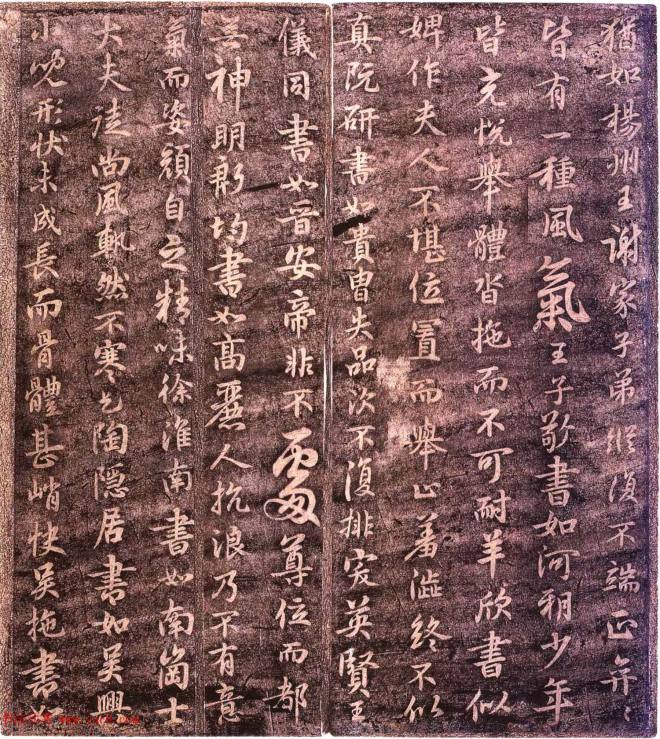 猶如楊州王謝家子弟縱復不端正奕〻
皆有一種風氣王子敬書如河朔少年
皆充悅舉體沓拖而不可耐羊欣書似
婢作夫人不堪位置而舉止羞澀終不似
真阮研書如貴冑失品次不復排突英賢王
儀同書如晉安帝非不處尊位而都
無神明殷均書如高麗人抗浪乃不有意
氣而姿顏自乏精味徐淮南書如南崗士
大夫徒尚風軌然不寒乞陶隱居書如吳興
小兒形狀未成長而骨體甚峭快吳施書如